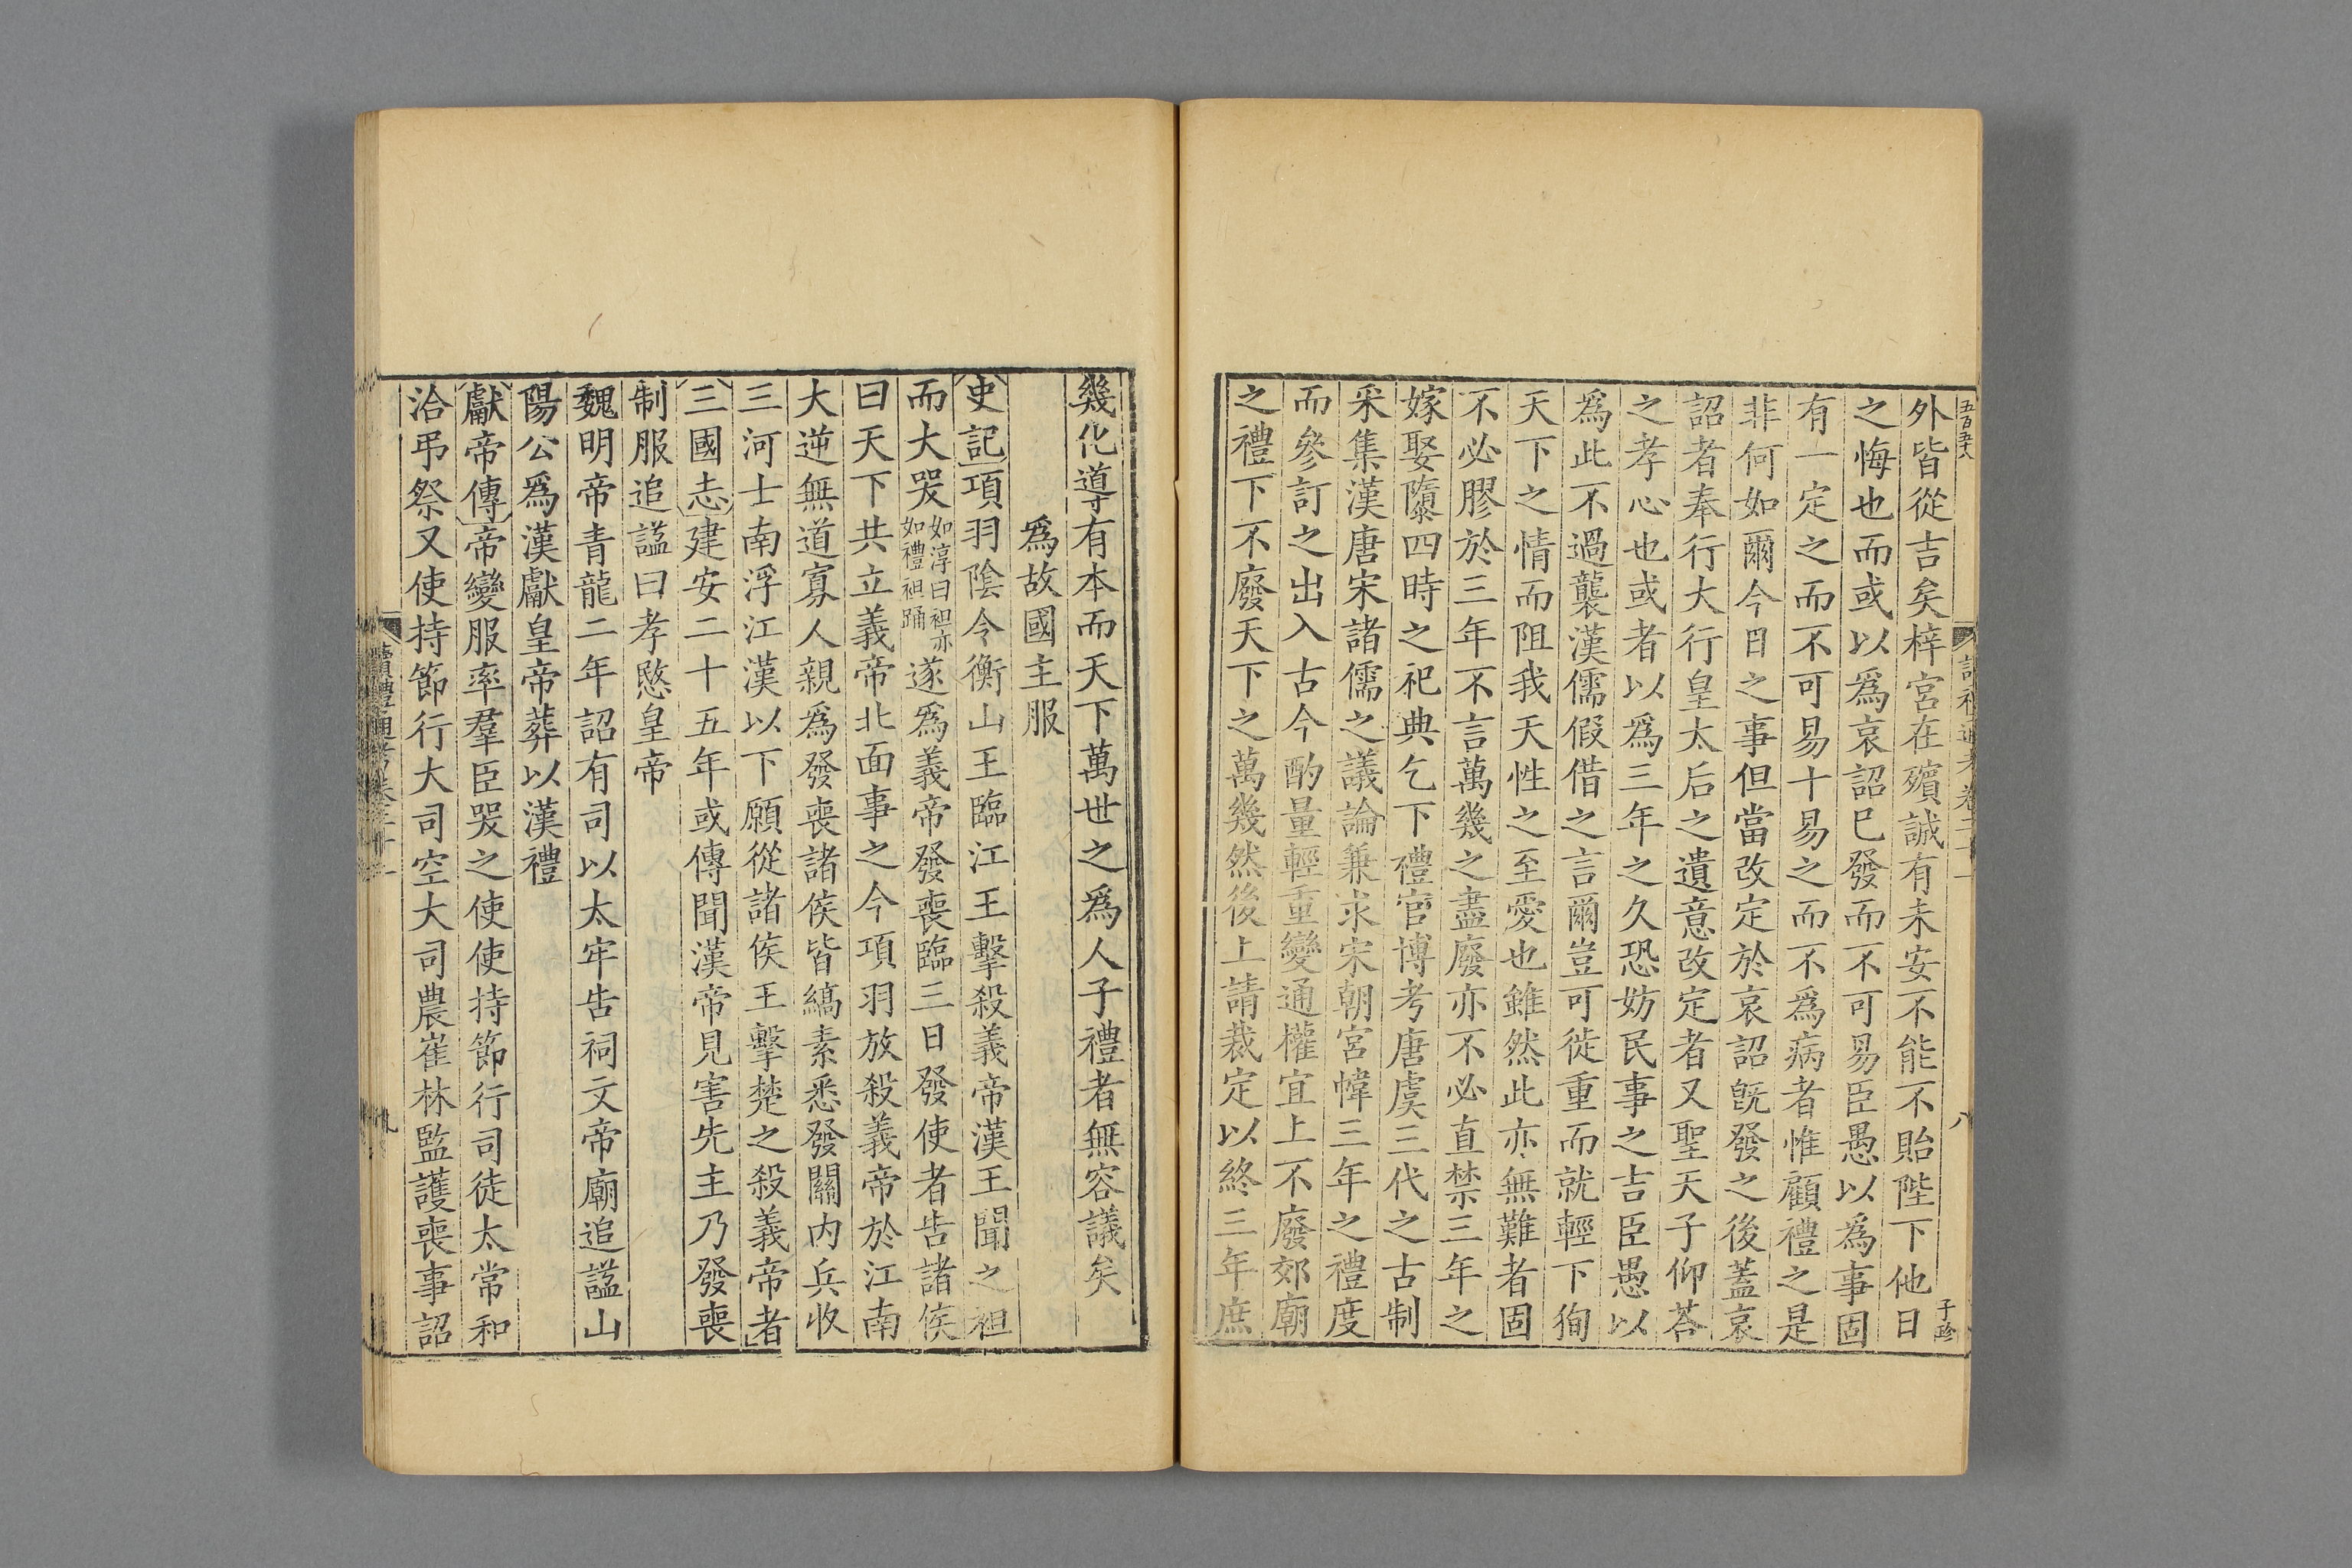 五百五十八
讀禮通考卷二十一
八
子珍
外皆從吉矣梓宮在殯誠有未安不能不貽陛下他日
之悔也而或以爲哀詔已發而不可易臣愚以爲事固
有一定之而不可易十易之而不爲病者惟顧禮之是
非何如爾今日之事但當改定於哀詔旣發之後蓋哀
詔者奉行大行皇太后之遺意改定者又聖天子仰荅
之孝心也或者以爲三年之久恐妨民事之吉臣愚以
爲此不過襲漢儒假借之言爾豈可徙重而就輕下徇
天下之情而阻我天性之至愛也雖然此亦無難者固
不必膠於三年不言萬幾之盡廢亦不必直禁三年之
嫁娶隳四時之祀典乞下禮官博考唐虞三代之古制
采集漢唐宋諸儒之議論兼求宋朝宮幃三年之禮度
而參訂之出入古今酌量輕重變通權宜上不廢郊廟
之禮下不廢天下之萬幾然後上請裁定以終三年庶
幾化導有本而天下萬世之爲人子禮者無容議矣
爲故國主服
史記項羽陰令衡山王臨江王擊殺義帝漢王聞之袒
而大哭如淳曰袒亦如禮袒踊遂爲義帝發喪臨三日發使者告諸侯
曰天下共立義帝北面事之今項羽放殺義帝於江南
大逆無道寡人親爲發喪諸侯皆縞素悉發關内兵收
三河士南浮江漢以下願從諸侯王擊楚之殺義帝者
三國志建安二十五年或傳聞漢帝見害先主乃發喪
制服追諡曰孝愍皇帝
魏明帝青龍二年詔有司以太牢告祠文帝廟追諡山
陽公爲漢獻皇帝葬以漢禮
獻帝傳帝變服率羣臣哭之使使持節行司徒太常和
洽弔祭又使持節行大司空大司農崔林監護喪事詔
讀禮通考卷二十一
九